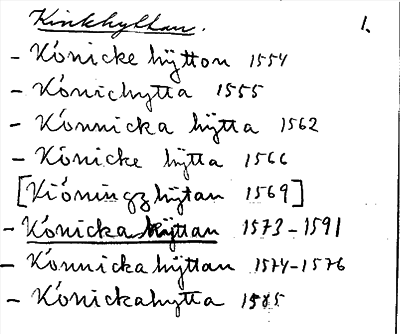 Kinkhyttan. 1.
- Kónicke hÿtton 1554
- Kónichytta 1555
- Kónnicka hÿtta 1562
- Kónicke hÿtta 1566
[Kióningzhÿtan 1569]
- Kónicka hÿttan 1573-1591
- Kónnickahÿttan 1574-1576
- Kónickahytta 1585